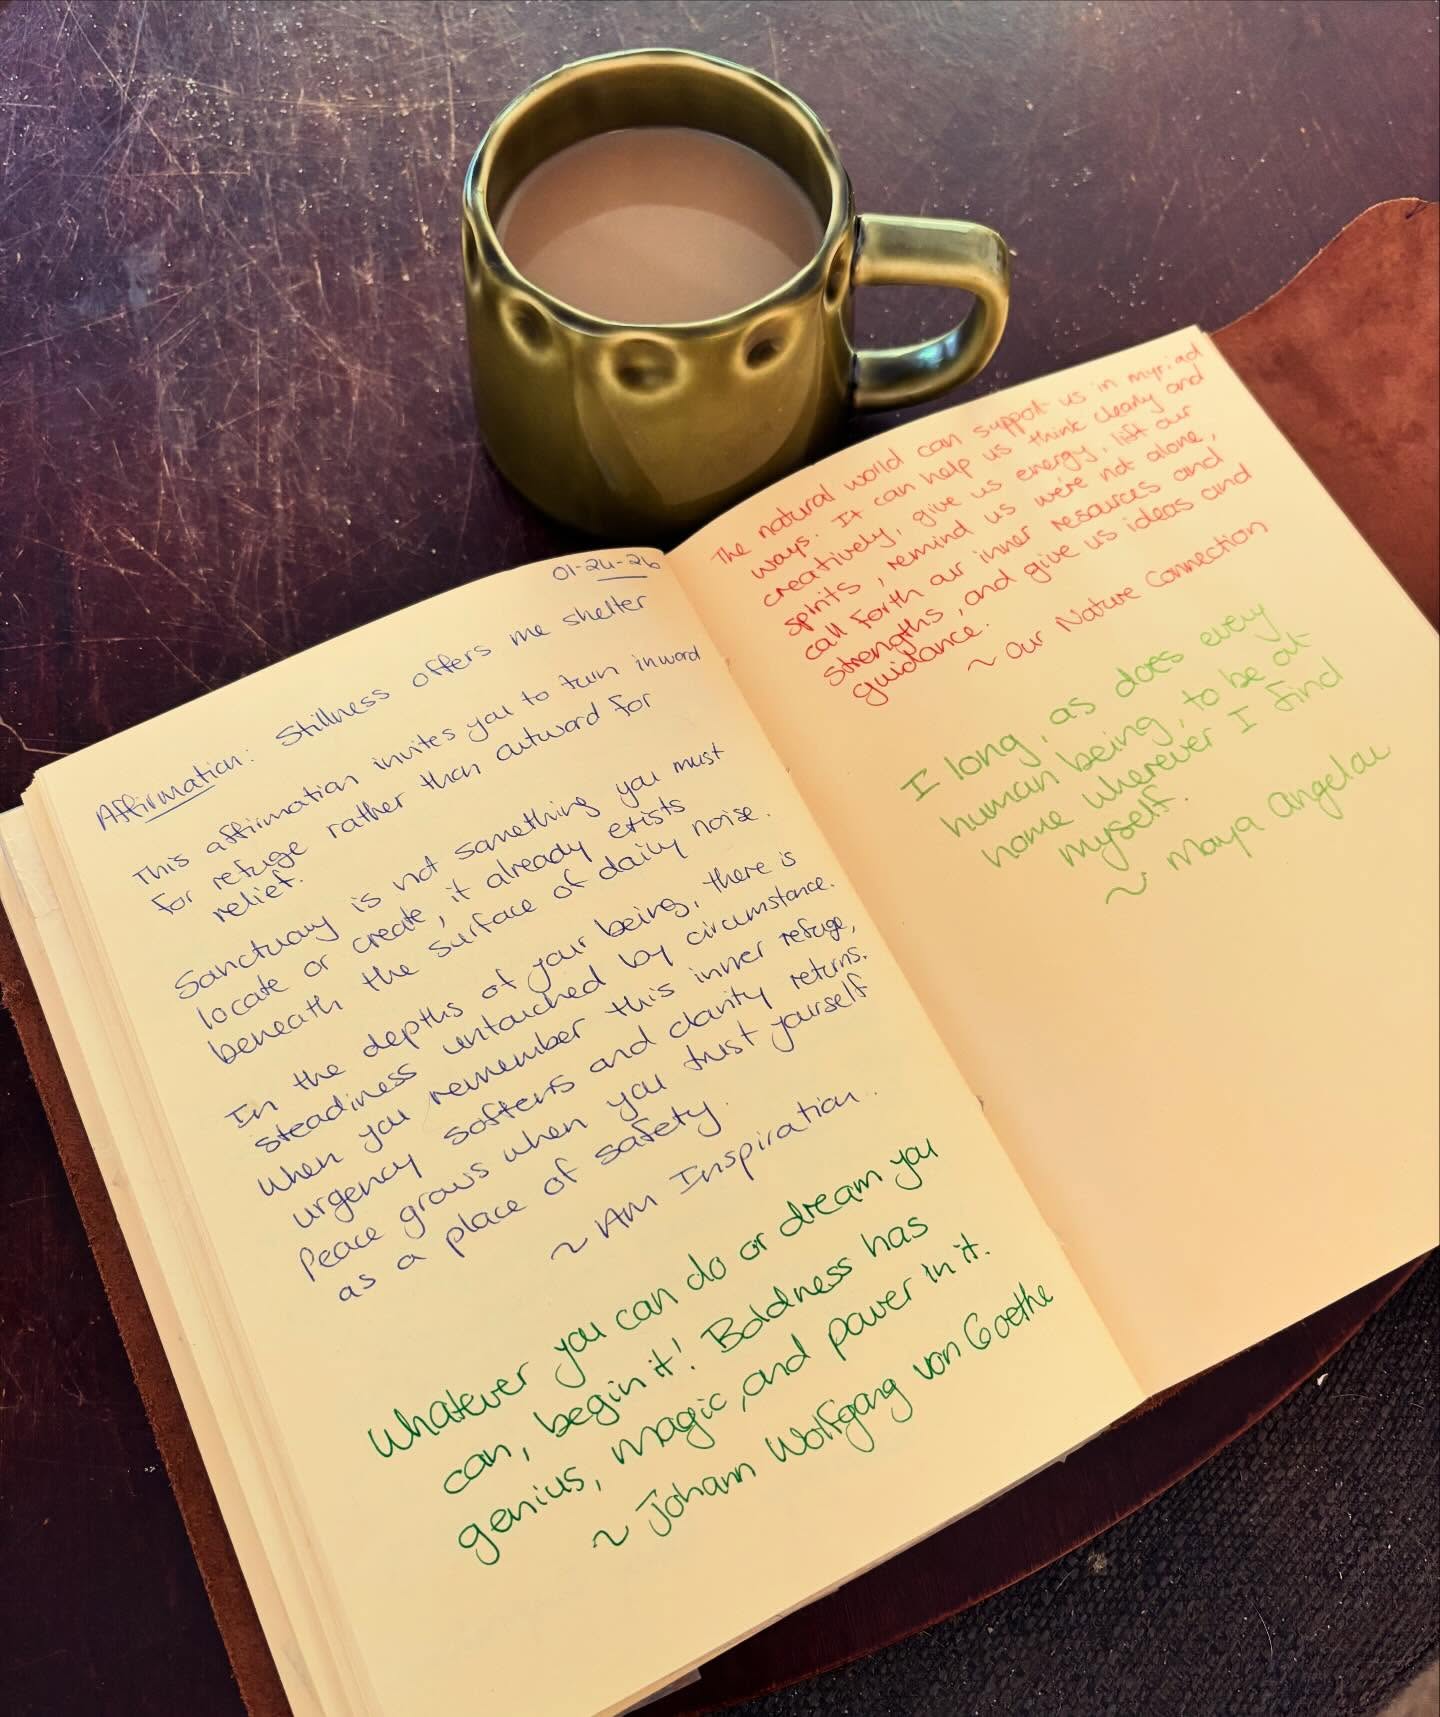 01-24-26
Affirmation: Stillness offers me shelter
This affirmation invites you to turn inward
for refuge rather than outward for
relief.
Sanctuary is not something you must
locate or create, it already exists
beneath the surface of daily noise.
In the depths of your being, there is
steadiness untouched by circumstance.
When you remember this inner refuge,
urgency softens and clarity returns.
Peace grows when you trust yourself
as a place of safety.
~ Am Inspiration.
Whatever you can do or dream you
can, begin it! Boldness has
genius, magic, and power in it.
~ Johann Wolfgang von Goethe
The natural world can support us in myriad
ways. It can help us think clearly and
creatively, give us energy, lift our
spirits, remind us we're not alone,
call forth our inner resources and
strengths, and give us ideas and
guidance.
~ Our Nature Connection
I long, as does every
human being, to be at
home wherever I find
myself.
~ Maya Angelou